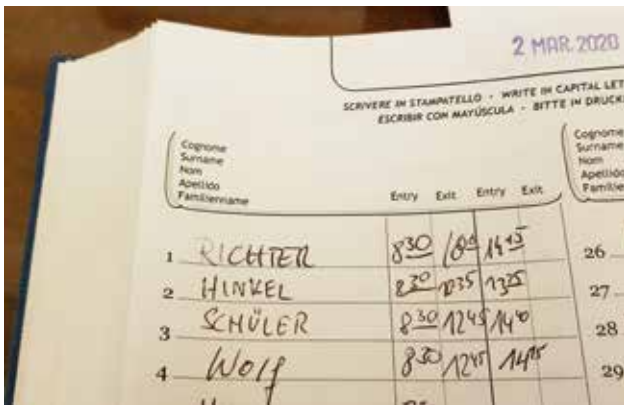 2 MAR. 2020
SCRIVERE IN STAMPATELLO - WRITE IN CAPITAL LET
ESCRIBIR CON MAYÚSCULA - BITTE IN DRUCK
Cognome
Surname
Nom
Apellido
Familienname
Entry Exit Entry Exit
Cognome
Surname
Nom
Apellido
Famili
1 RICHTER 8 30 14 45
26
2 HINKEL 8 30 13 25
27
3 SCHÜLER 8 30 12 45 14 40
28
4 Wolf 8 30 12 45
29